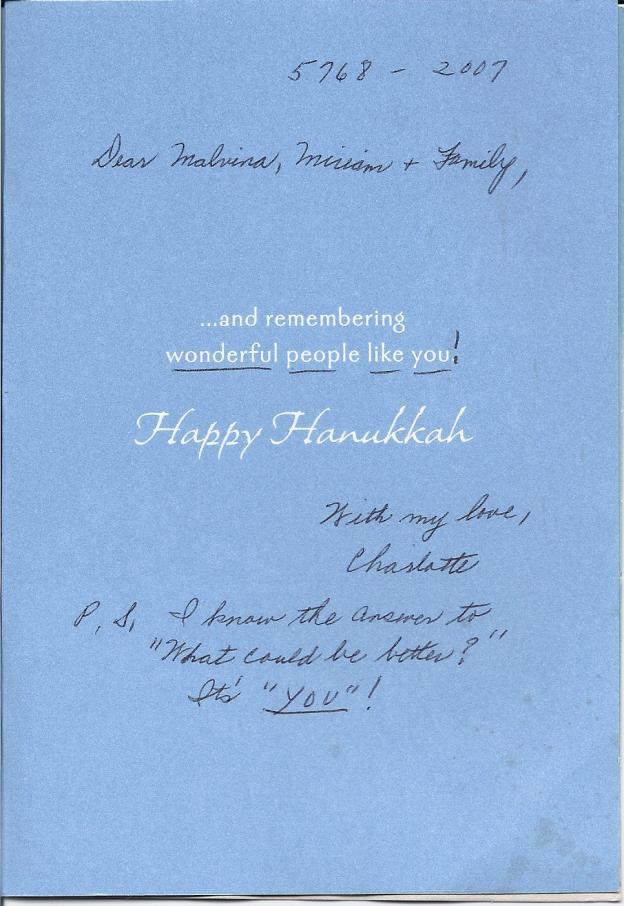 5768 - 2007
Dear Malvina, Miriam + Family,
...and remembering
wonderful people like you!
Happy Hanukkah
With my love,
Charlotte
P.S. I know the answer to
"What could be better?"
It's "YOU"!